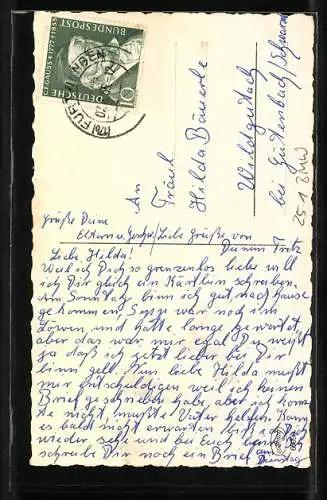 C.F.GAUSS * 1777 † 1855
DEUTSCHE BUNDESPOST
10
(17b) FURTWANGEN
An
Fräul.
Hilda Bäuerle
Wildgutach
bei Gütenbach/Schwarzw
251 BMW
Grüße Deine
Eltern u. Geschw./Liebe Grüße von
Deinem Fritz
Liebe Hilda!
Weil ich Dich so grenzenlos liebe will
ich Dir gleich ein Kärtlein schreiben.
Am Sonntag binn ich gut nach hause
gekommen, war noch im
Löwen, und hatte lange gewartet,
aber das war mir egal Du weißt
ja daß ich jetzt lieber bei Dir
binn gell. Nun liebe Hilda mußt
mir entschuldigen weil ich keinen
Brief geschrieben habe, aber ich kon̄
te nicht, mußte Vater helfen. Kann
es bald nicht erwarten bis ich Dich
wieder sehe und bei Euch binn. Ich
schreibe Dir noch ein Brief am
Dienstag